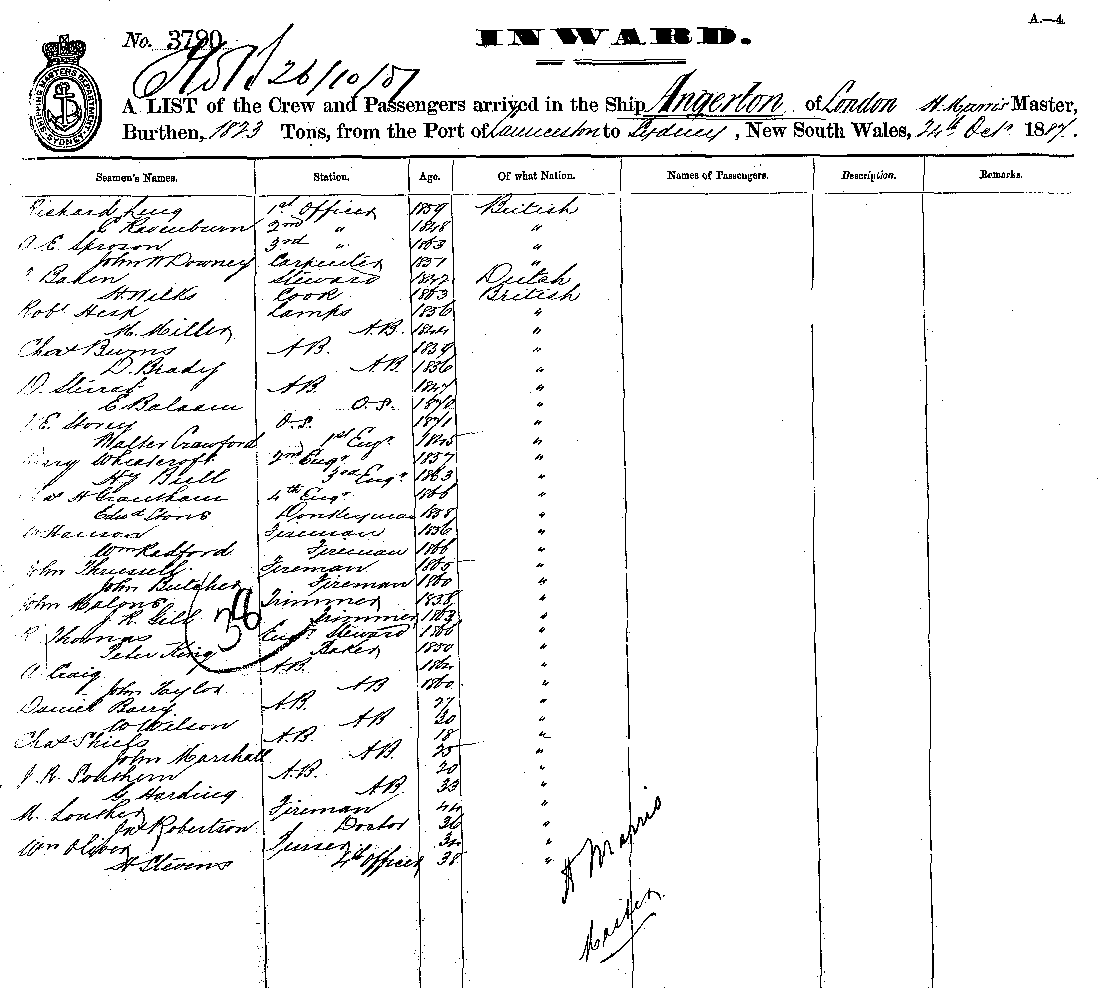 A.—4.
No. 3790 INWARD.
26/10/87
A LIST of the Crew and Passengers arrived in the Ship Angerton of London H. Marris Master,
Burthen, 1823 Tons, from the Port of Launceston to Sydney, New South Wales, 24th Oct. 1887.
Seamen's Names. Station. Age. Of what Nation. Names of Passengers. Description. Remarks.
Richard King 1st Officer 1859 British
Ravenburn 2nd " 1848 "
E. Sproson 3rd " 1863 "
John W Downey Carpenter 1851 "
Baken Steward 1842 Dutch
H. Wilks Cook 1863 British
Robt Hesp Lamps 1856 "
M. Miller A.B. 1844 "
Chas Burns A.B. 1839 "
D. Brady A.B. 1836 "
A.B. 1847 "
E. Balaam O.S. 1870 "
E. Storey O.S. 1871 "
Walter Crawford 1st Engr "
Wheatcroft 2nd Engr 1857 "
Bull 3rd Engr 1863 "
H Grantham 4th Engr 1866 "
Edwd Donkeyman 1858 "
Fireman 1856 "
Wm Radford Fireman 1866 "
John Thrussell Fireman 1865 "
John Butcher Fireman 1860 "
John Malone Trimmer 1838 "
J. R. Gill Trimmer 1863 "
Thomas Engrs Steward 1866 "
Peter King Baker 1850 "
Craig A.B. "
John Taylor A.B. 1860 "
Daniel Barry A.B. 27 "
W Wilson A.B. 30 "
Chas Shiels A.B. 18 "
John Marshall A.B. 25 "
J. R. A.B. 20 "
G. Harding A.B. 33 "
M. Fireman 44 "
Jas Robertson Doctor 36 "
Wm Oliver Purser 34 "
H Stevens 4th Officer 38 "
38
H Marris
Master